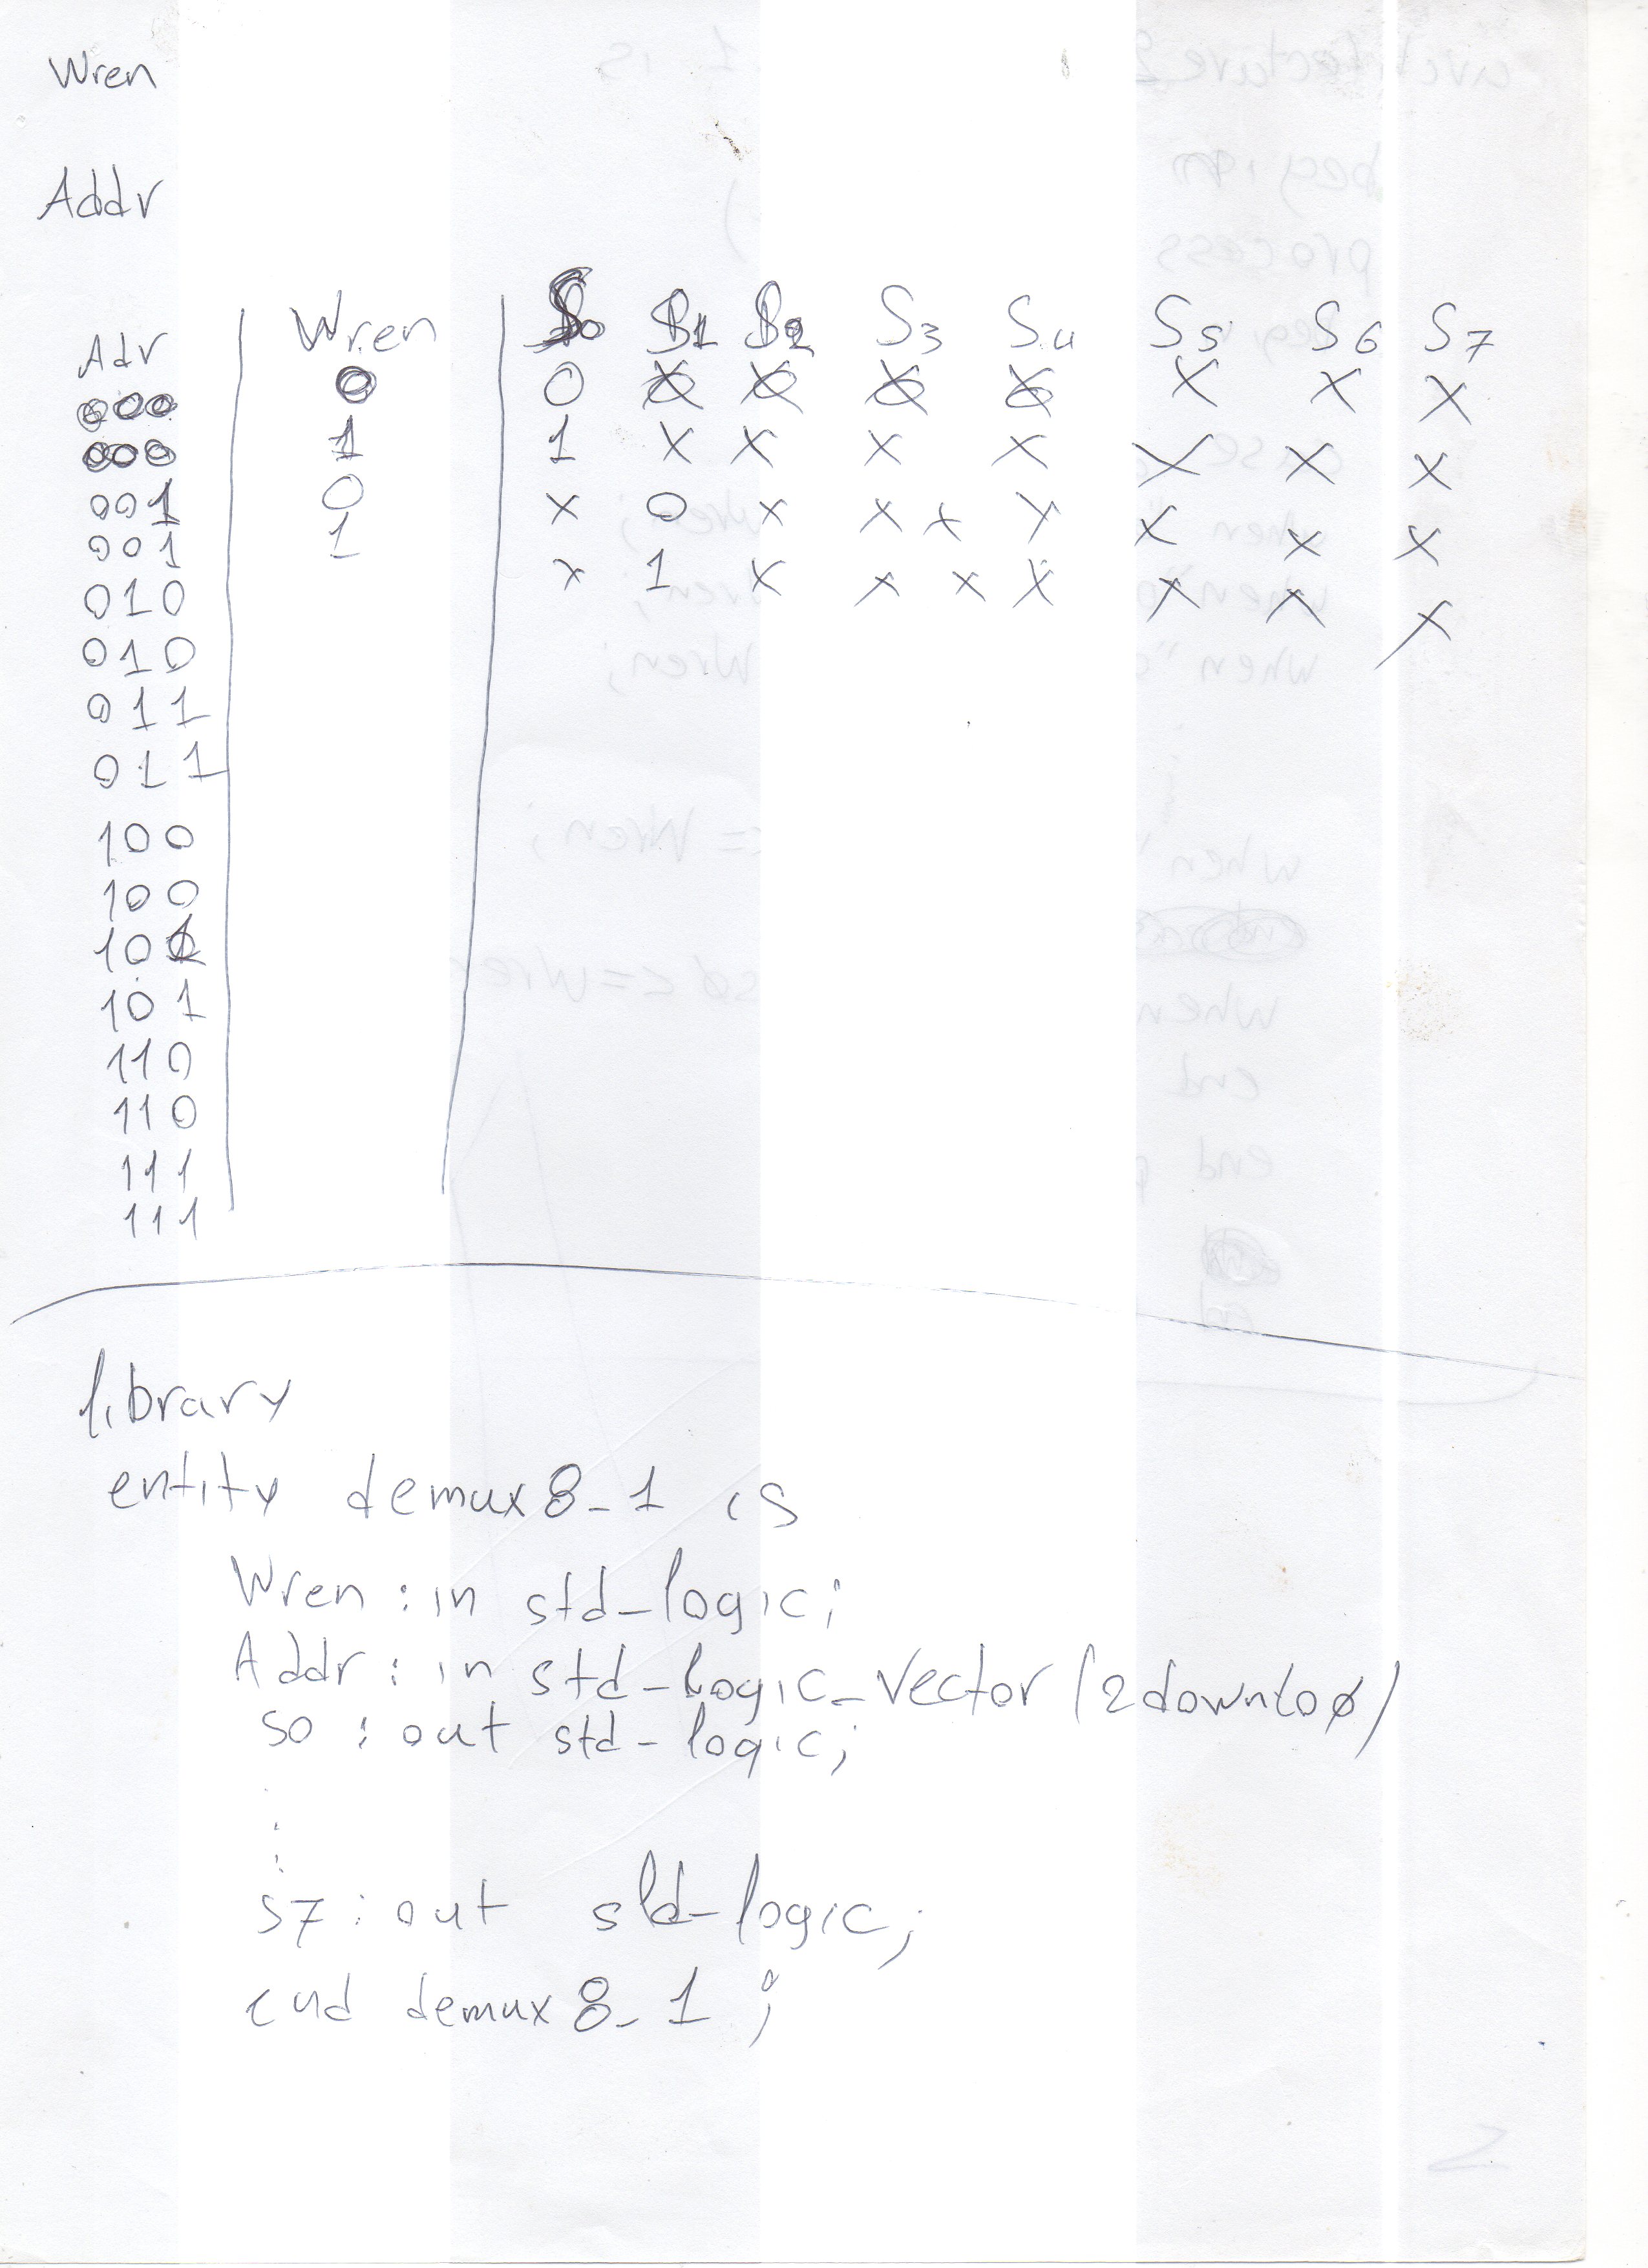 Wren
Addr
Adr Wren S0 S1 S2 S3 S4 S5 S6 S7
000 0 0 X X X X X X X
000 1 1 X X X X X X X
001 0 x 0 x x x x x x x
001 1 x 1 x x x x x x x
010
010
011
011
100
100
101
101
110
110
111
111
library
entity demux8_1 is
Wren : in std_logic;
Addr : in std_logic_vector (2 downto 0)
S0 : out std_logic;
:
:
S7 : out std_logic;
end demux8_1 ;